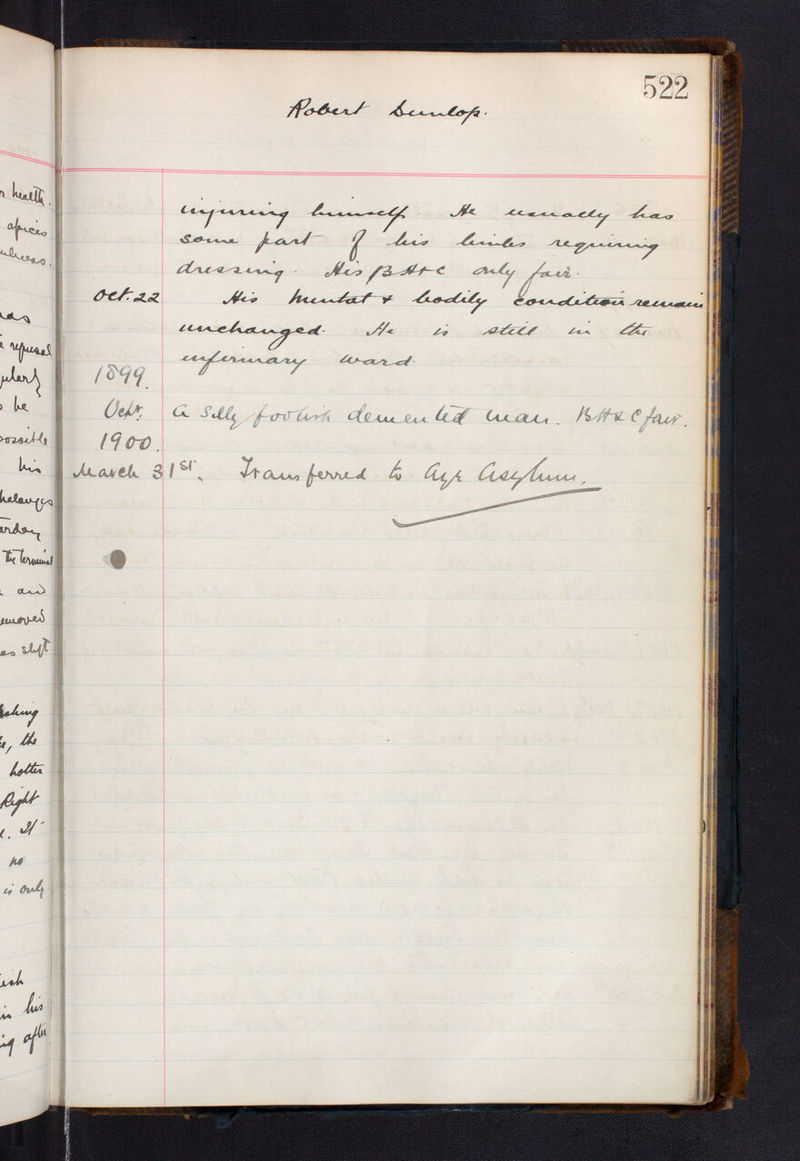 522
Robert Dunlop.
injuring himself. He usually has
some part of his limbs requiring
dressing. His B H & C only fair.
Oct. 22 His mental & bodily condition remain
unchanged. He is still in the
infirmary ward.
1899.
Octr. A silly foolish demented man. B H & C fair.
1900.
March 31st. Transferred to Ayr Asylum.
health.
apices
refusal
be
possible
his
the terminal
and
removed
the
Right
It
no
is only
in his
after